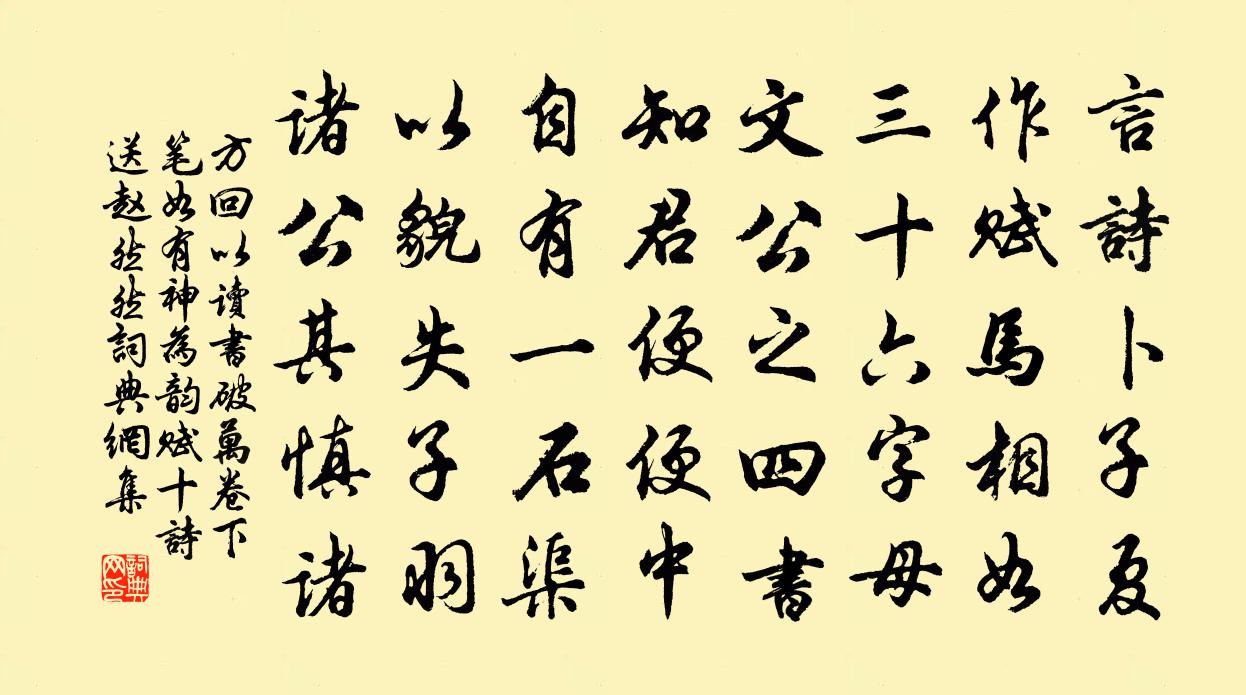 言詩卜子夏
作賦馬相如
三十六字母
文公之四書
知君便便中
自有一石渠
以貌失子羽
諸公其慎諸
方回以讀書破萬卷下
笔如有神為韵賦十詩
送赵然然詞典網集
詞典网印